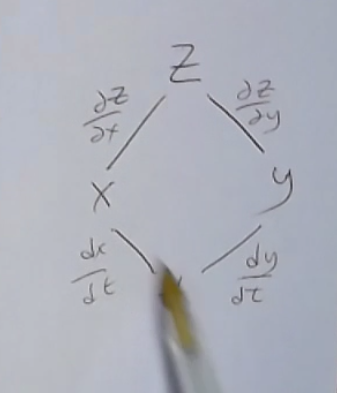 Z
∂Z/∂x ∂Z/∂y
x y
dx/dt dy/dt